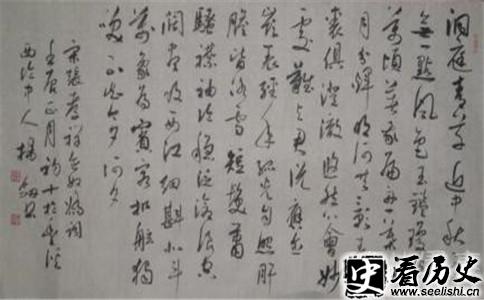 洞庭青草近中秋
无一点风色玉鉴琼
万顷著我扁舟一叶素
月分辉明河共影表
里俱澄澈悠然心会妙
处难与君说应念
岭表经年孤光自照肝
胆皆冰雪短鬓萧
骚襟袖冷稳泛沧浪空
阔尽吸西江细斟北斗
万象为宾客扣舷独
啸不知今夕何夕
宋张孝祥念奴娇词
正月初十于
西泠中人杨
史看历史
www.seelishi.cn